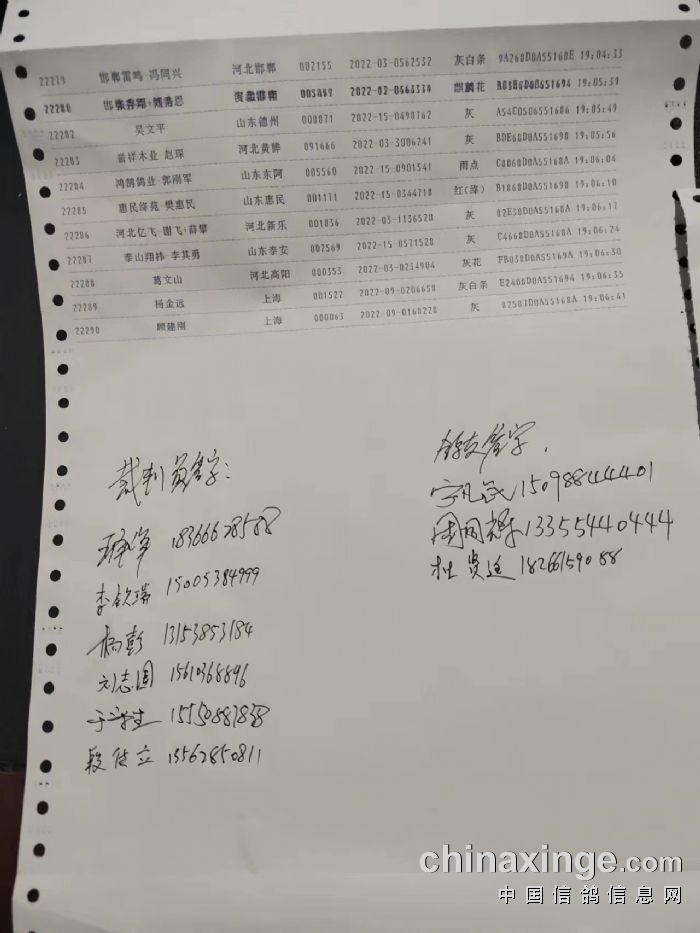 22279 邯郸雷鸣-冯同兴 河北邯郸 002155 2022-03-0562532 灰白条 9A268D0A55168E 19:04:33
22280 麒麟花 19:05:39
22282 吴文平 山东德州 000871 2022-15-0498762 灰 A54C0506551686 19:05:49
22283 普祥木业-赵琛 河北黄骅 091666 2022-03-3006241 灰 BDE68D0A551698 19:05:56
22284 鸿鹄鸽业-郭刚军 山东东阿 005560 2022-15-0901541 雨点 C8068D0A55168A 19:06:04
22285 惠民绛苑-樊惠民 山东惠民 001171 2022-15-0344718 红(绛) B1868D0A551698 19:06:10
22286 河北亿飞-谢飞+薛攀 河北新乐 001836 2022-03-1136520 灰 02E38D0A55168A 19:06:17
22287 泰山翔祎-李其勇 山东泰安 002569 2022-15-0571528 灰 C4668D0A55168A 19:06:24
22288 葛文山 河北高阳 000353 2022-03-0234904 灰花 FB038D0A55169A 19:06:30
22289 杨金远 上海 001522 2022-09-0206658 灰白条 E2408D0A551694 19:06:35
22290 顾建刚 上海 000063 2022-09-0168228 灰 02503D0A55168A 19:06:41
裁判员签字:
鸽友签字.
18366628588
宁凡民15098844401
李钦瑞 15005384999
周同辉13355440444
杨彭 13153853184
杜贤廷 18266159088
刘志国 15610368896
于学生
段传立 13562850811
chinaxinge.com
中国信鸽信息网